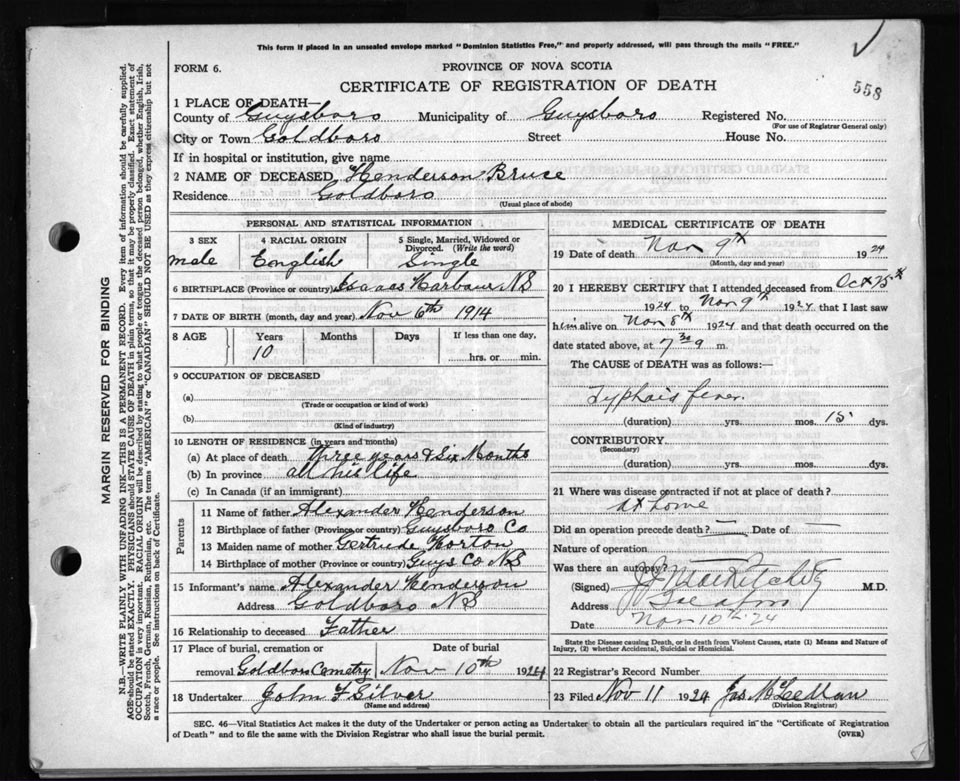 This form if placed in an unsealed envelope marked "Dominion Statistics Free," and properly addressed, will pass through the mails "FREE."
FORM 6.
PROVINCE OF NOVA SCOTIA
CERTIFICATE OF REGISTRATION OF DEATH
558
1 PLACE OF DEATH—
County of Guysboro Municipality of Guysboro Registered No.
(For use of Registrar General only)
City or Town Goldboro Street House No.
If in hospital or institution, give name
2 NAME OF DECEASED Henderson Bruce
Residence Goldboro
(Usual place of abode)
PERSONAL AND STATISTICAL INFORMATION
3 SEX
male
4 RACIAL ORIGIN
English
5 Single, Married, Widowed or Divorced. (Write the word)
Single
6 BIRTHPLACE (Province or country) Isaacs Harbour NS
7 DATE OF BIRTH (month, day and year) Nov 6th 1914
8 AGE
Years
10
Months
Days
If less than one day,
hrs. or min.
9 OCCUPATION OF DECEASED
(a)
(Trade or occupation or kind of work)
(b)
(Kind of industry)
10 LENGTH OF RESIDENCE (in years and months)
(a) At place of death three years & six Months
(b) In province all his life
(c) In Canada (if an immigrant)
Parents
11 Name of father Alexander Henderson
12 Birthplace of father (Province or country) Guysboro Co
13 Maiden name of mother Gertrude Horton
14 Birthplace of mother (Province or country) Guys Co NS
15 Informant's name Alexander Henderson
Address Goldboro NS
16 Relationship to deceased Father
17 Place of burial, cremation or removal Goldboro Cemetry
Date of burial
Nov 10th 1924
18 Undertaker John F Silver
(Name and address)
MEDICAL CERTIFICATE OF DEATH
19 Date of death Nov 9th 1924
(Month, day and year)
20 I HEREBY CERTIFY that I attended deceased from Oct 25th
1924 to Nov 9th 1924 that I last saw
him alive on Nov 8th 1924 and that death occurred on the
date stated above, at 7 30 a m.
The CAUSE of DEATH was as follows:—
Typhoid fever.
(duration) yrs. mos. 15 dys.
CONTRIBUTORY.
(Secondary)
(duration) yrs. mos. dys.
21 Where was disease contracted if not at place of death?
at home
Did an operation precede death? — Date of —
Nature of operation
Was there an autopsy?
(Signed) M.D.
Address
Date Nov 10th 24
State the Disease causing Death, or in death from Violent Causes, state (1) Means and Nature of Injury, (2) whether Accidental, Suicidal or Homicidal.
22 Registrar's Record Number
23 Filed Nov 11 1924 Jas McLellan
(Division Registrar)
SEC. 46—Vital Statistics Act makes it the duty of the Undertaker or person acting as Undertaker to obtain all the particulars required in the "Certificate of Registration of Death" and to file the same with the Division Registrar who shall issue the burial permit.
(OVER)
MARGIN RESERVED FOR BINDING
N.B.—WRITE PLAINLY WITH UNFADING INK—THIS IS A PERMANENT RECORD. Every item of information should be carefully supplied.
AGE should be stated EXACTLY. PHYSICIANS should STATE CAUSE OF DEATH in plain terms, so that it may be properly classified. Exact statement of
OCCUPATION is very important. RACIAL ORIGIN will be described by stating to what people or tongue the deceased person belonged, whether English, Irish,
Scotch, French, German, Russian, Ruthenian, etc. The terms "AMERICAN" or "CANADIAN" SHOULD NOT BE USED as they express citizenship but not
a race or people. See instructions on back of Certificate.